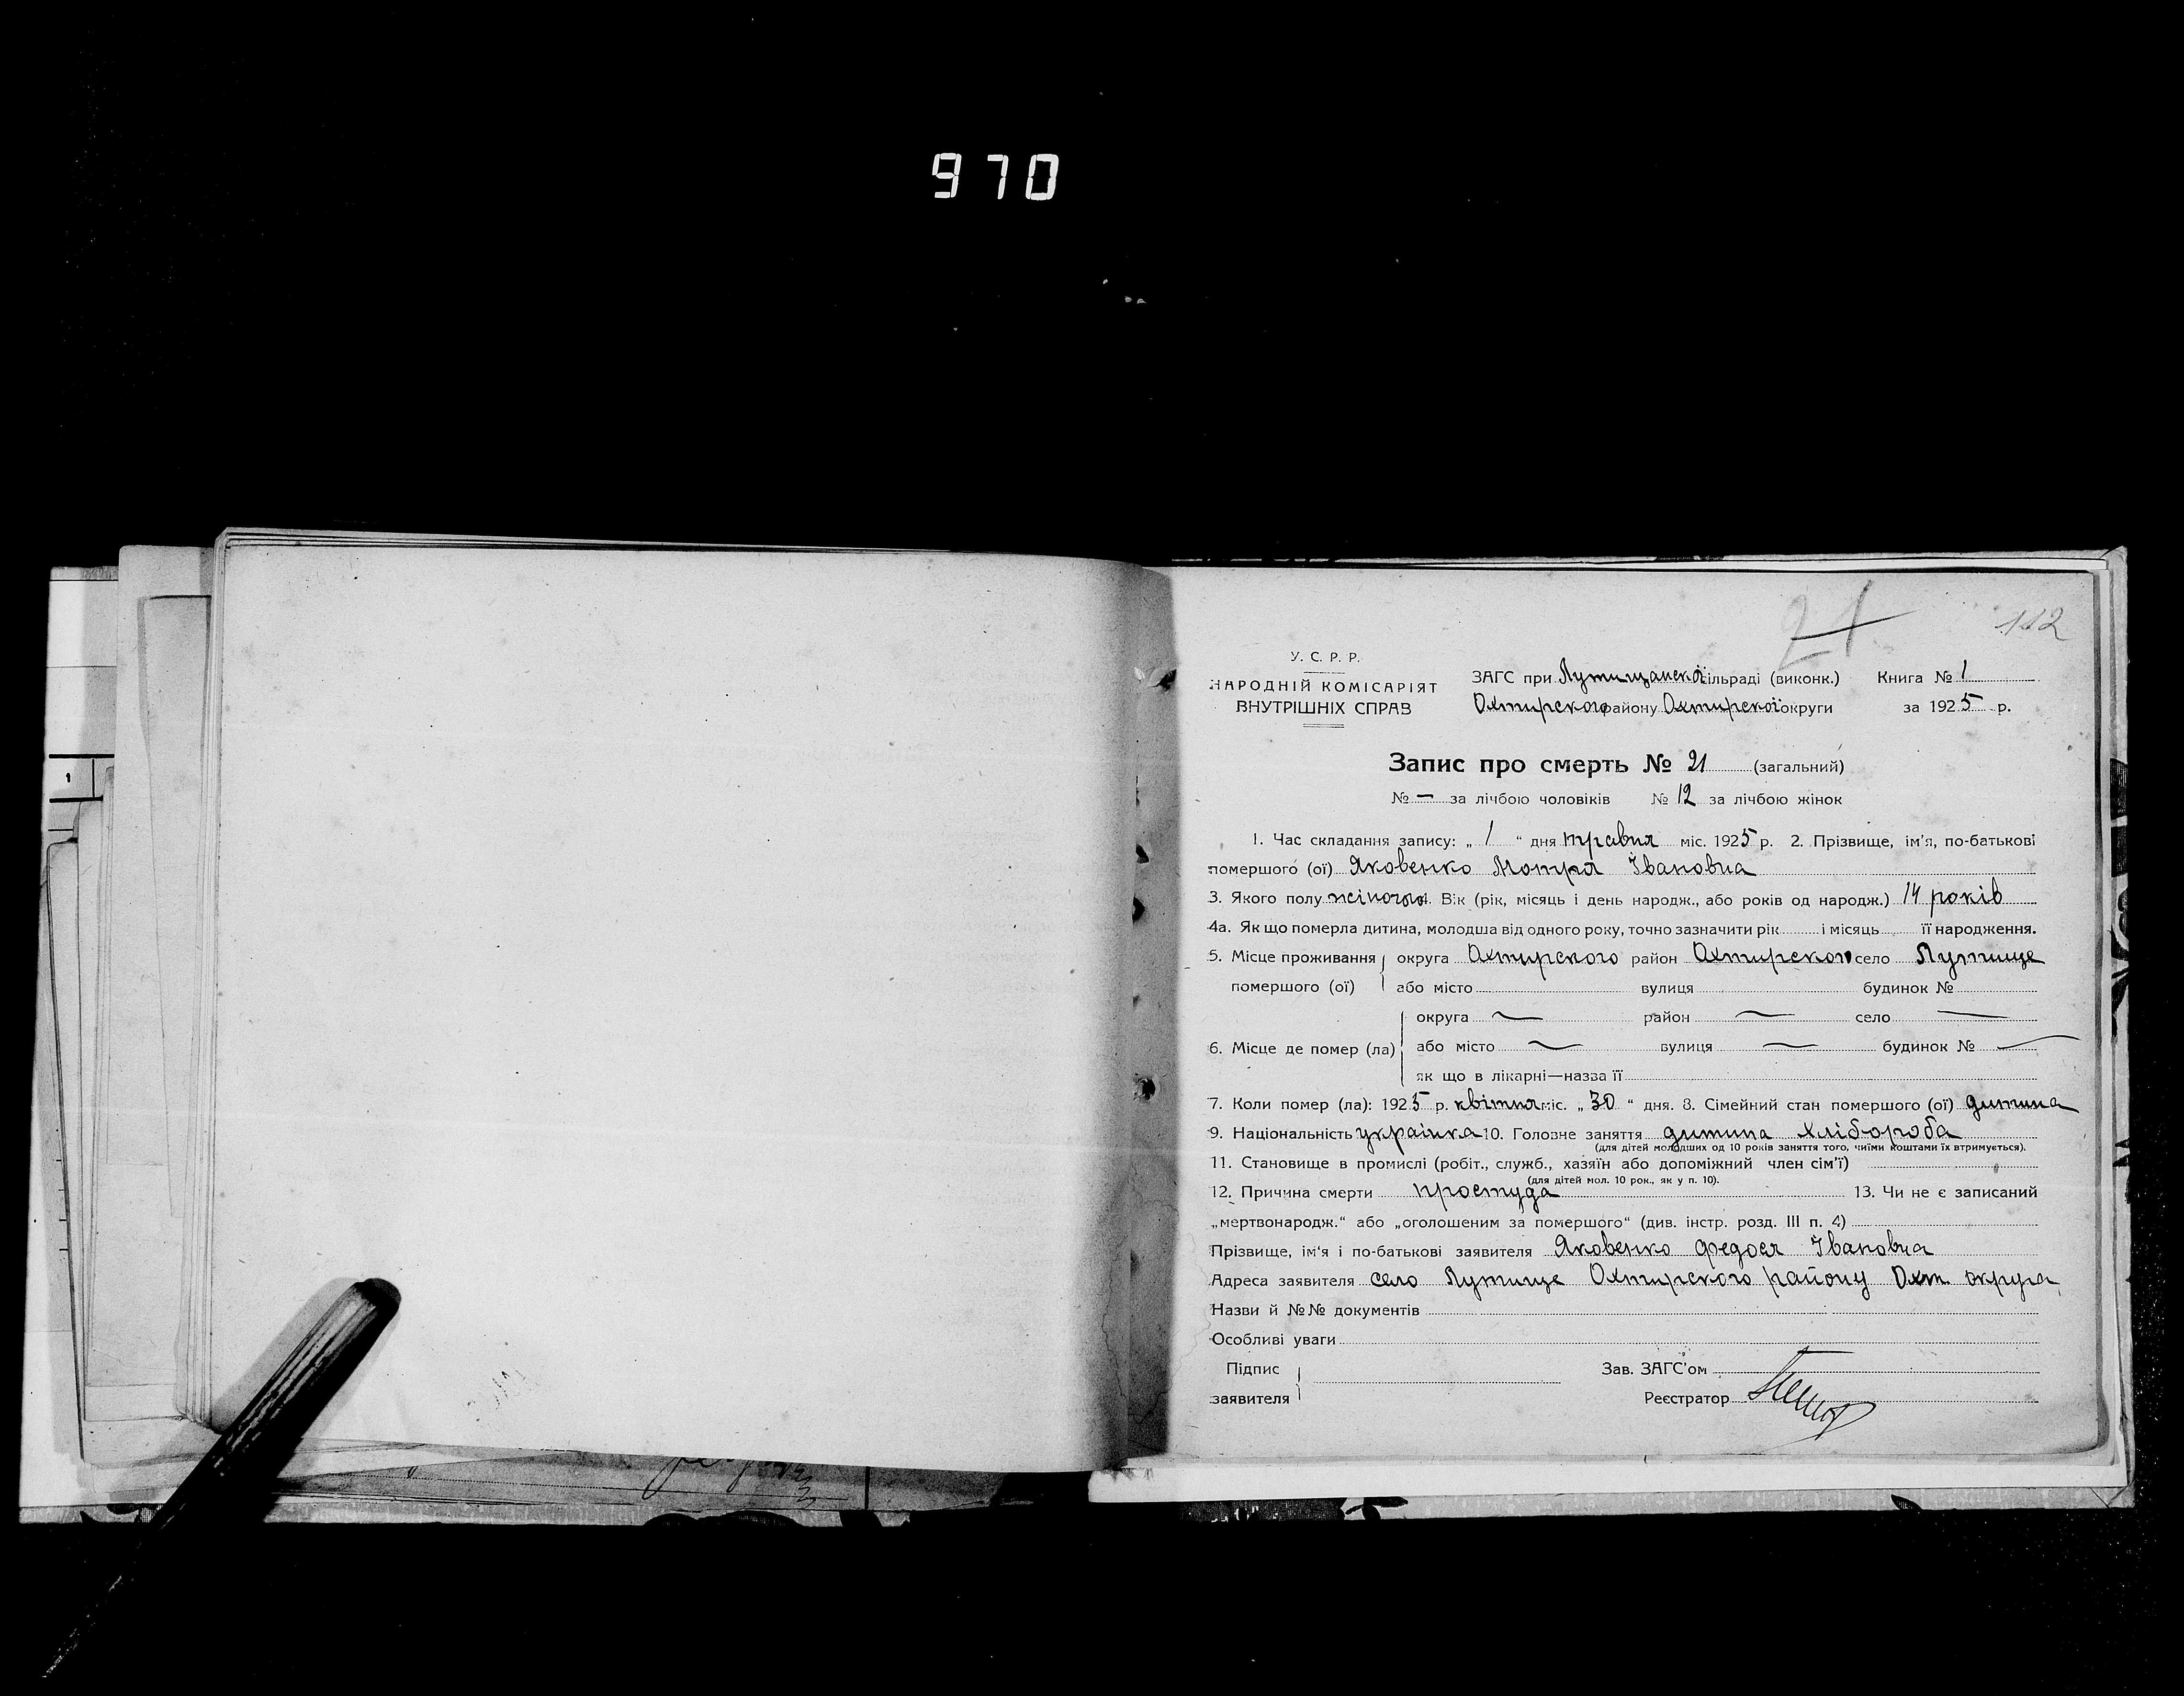 970
1
21
112
У. С. Р. Р.
НАРОДНІЙ КОМІСАРІЯТ
ВНУТРІШНІХ СПРАВ
ЗАГС при Лутищанскої сільраді (виконк.) Книга № 1
Охтирского району Охтирскої округи за 1925 р.
Запис про смерть № 21 (загальний)
№ — за лічбою чоловіків № 12 за лічбою жінок
1. Час складання запису: „ 1 “ дня травня міс. 1925 р. 2. Прізвище, ім'я, по-батькові
помершого (ої) Яковенко Мотря Івановна
3. Якого полу жіночого 4. Вік (рік, місяць і день народж., або років од народж.) 14 років
4а. Як що померла дитина, молодша від одного року, точно зазначити рік і місяць її народження.
5. Місце проживання округа Охтирского район Охтирского село Лутище
помершого (ої) або місто вулиця будинок №
округа — район — село —
6. Місце де помер (ла) або місто — вулиця — будинок № —
як що в лікарні—назва її
7. Коли помер (ла): 1925 р. квітня міс. „ 30 “ дня. 8. Сімейний стан помершого (ої) дитина
9. Національність украінка 10. Головне заняття дитина хлібороба
(для дітей молодших од 10 років заняття того, чиїми коштами їх втримується).
11. Становище в промислі (робіт., служб., хазяїн або допоміжний член сім'ї)
(для дітей мол. 10 рок., як у п. 10).
12. Причина смерти простуда 13. Чи не є записаний
„мертвонародж.“ або „оголошеним за помершого“ (див. інстр. розд. III п. 4)
Прізвище, ім'я і по-батькові заявителя Яковенко Федося Івановна
Адреса заявителя село Лутище Охтирского району Охт. округа
Назви й №№ документів
Особливі уваги
Підпис Зав. ЗАГС'ом
заявителя Реєстратор